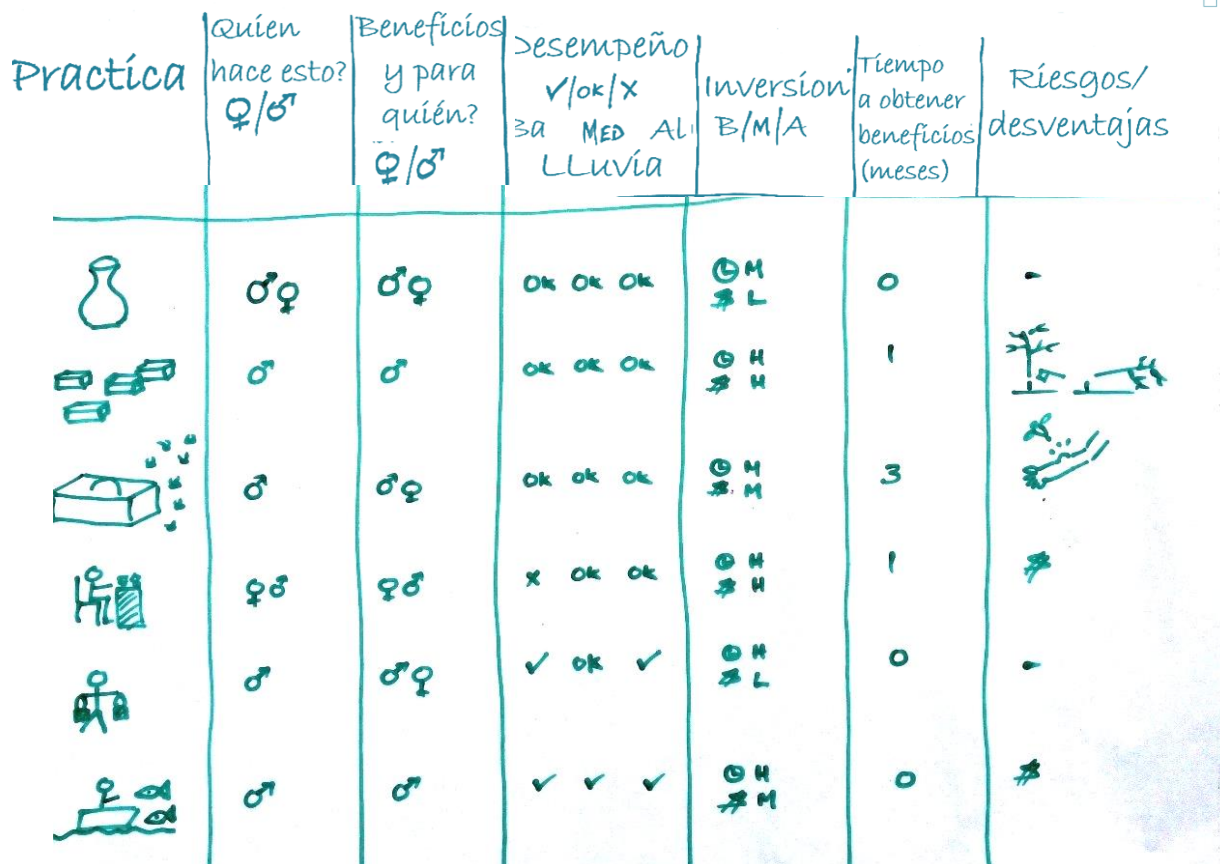 Practica
Quien
hace esto?
♀/♂
Beneficios
y para
quién?
♀/♂
Desempeño
✓/OK/X
Ba MED Al
LLuvia
Inversion
B/M/A
Tiempo
a obtener
beneficios
(meses)
Riesgos/
desventajas
♂♀ ♂♀ OK OK OK M 0 -
$ L
♂ ♂ OK OK OK H 1
$ H
♂ ♂♀ OK OK OK M 3
$ M
♀♂ ♀♂ X OK OK H 1 $
$ H
♂ ♂♀ ✓ OK ✓ H 0 -
$ L
♂ ♂ ✓ ✓ ✓ H 0 $
$ M